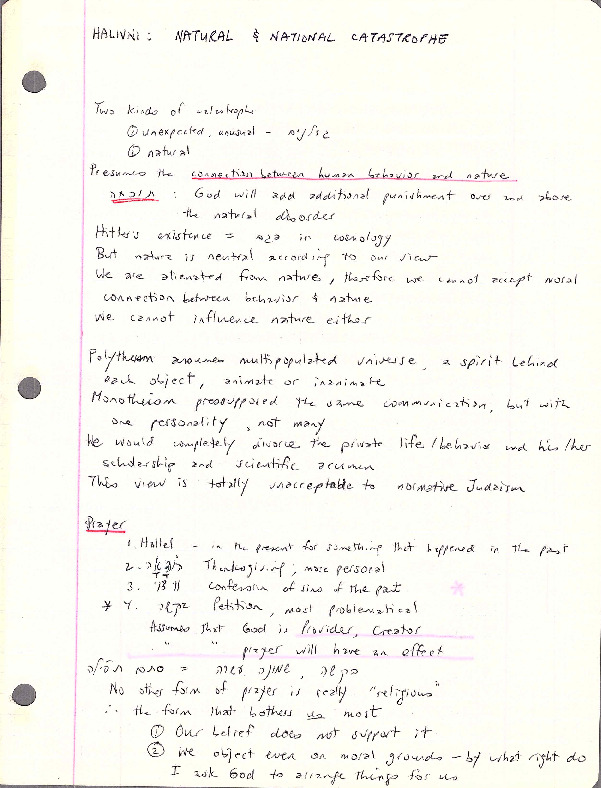 HALIVNI: NATURAL & NATIONAL CATASTROPHE
Two kinds of catastrophe
① unexpected, unusual -
② natural
Presumes the connection between human behavior and nature
: God will add additional punishment over and above
the natural disorder
Hitler's existence = in cosmology
But nature is neutral according to our view
We are alienated from nature, therefore we cannot accept moral
connection between behavior & nature
We cannot influence nature either
Polytheism assumes multipopulated universe, a spirit behind
each object, animate or inanimate
Monotheism presupposed the same communication, but with
one personality, not many
He would completely divorce the private life/behavior and his/her
scholarship and scientific acumen
This view is totally unacceptable to normative Judaism
Prayer
1. Hallel - in the present for something that happened in the past
2. Thanksgiving; more personal
3. וידוי Confession of sins of the past
* 4. Petition, most problematical
Assumes that God is Provider, Creator
" " prayer will have an effect
No other form of prayer is really "religious"
∴ the form that bothers us most
① Our belief does not support it
② We object even on moral grounds - by what right do
I ask God to arrange things for us